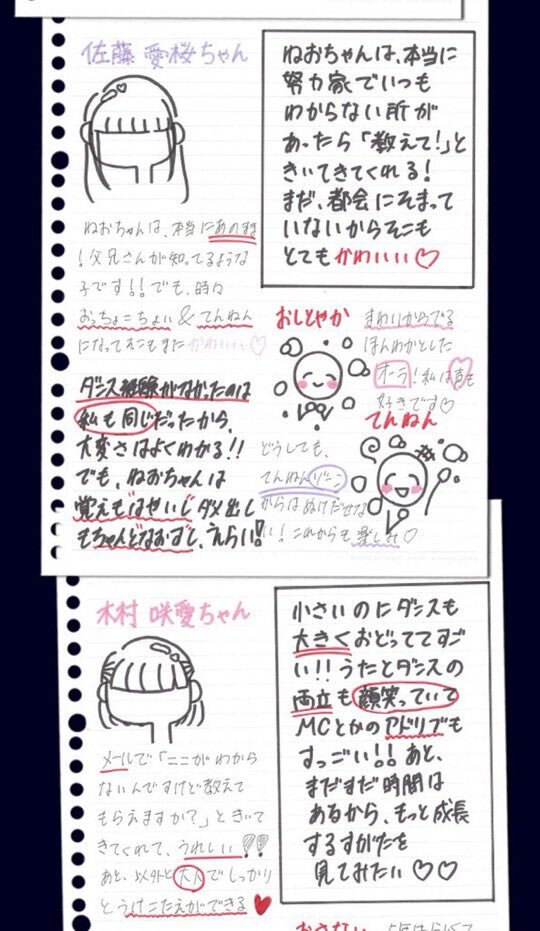 佐藤 愛桜ちゃん
ねおちゃんは、本当に
努力家でいつも
わからない所が
あったら「教えて!」と
きいてきてくれる!
まだ、都会にそまって
いないからそこも
とてもかわいい♡
ねおちゃんは、本当にあのまま
!父兄さんが知ってるような
子です!!でも、時々
おっちょこちょい&てんねん
になってそこもまたかわいい♡
おしとやか
まわりからでる
ほんわかとした
オーラ!私は声も
好きです♡
ダンス経験がなかったのは
私も同じだったから、
大変さはよくわかる!!
でも、ねおちゃんは
覚えもはやいしダメ出し
もちゃんとなおすし、えらい!!
てんねん
どうしても、
てんねんゾーン
からはぬけだせな
い!これからも楽しみ♡
木村 咲愛ちゃん
小さいのにダンスも
大きくおどっててすご
い!!うたとダンスの
両立も顔笑っていて
MCとかのアドリブも
すっごい!!あと、
まだまだ時間は
あるから、もっと成長
するすがたを
見てみたい♡♡
メールで「ここがわから
ないんですけど教えて
もらえますか?」ときいて
きてくれて、うれしい!!
あと、以外と大人でしっかり
とうけこたえができる♥
おさない